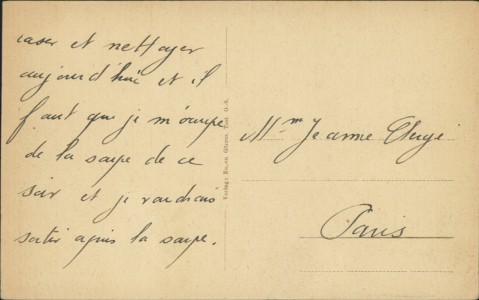 caser et nettoyer
aujourd'hui et il
faut que je m'occupe
de la soupe de ce
soir et je voudrais
sortir après la soupe.
Mme Jeanne
Paris